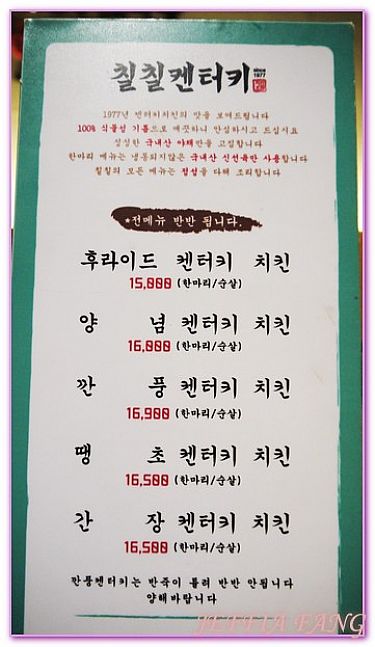 칠칠켄터키 since 1977
1977년 켄터키치킨의 맛을 보여드립니다
100% 식물성 기름으로 깨끗하니 안심하시고 드십시요
싱싱한 국내산 야채만을 고집합니다
한마리 메뉴는 냉동되지않은 국내산 신선육만 사용합니다
칠칠의 모든 메뉴는 정성을 다해 조리합니다
★전메뉴 반반 됩니다.
후라이드 켄터키 치킨
15,000 (한마리/순살)
양 념 켄터키 치킨
16,000 (한마리/순살)
깐 풍 켄터키 치킨
16,900 (한마리/순살)
땡 초 켄터키 치킨
16,500 (한마리/순살)
간 장 켄터키 치킨
16,500 (한마리/순살)
깐풍켄터키는 반죽이 틀려 반반 안됩니다
양해바랍니다
JEFFIA FANG